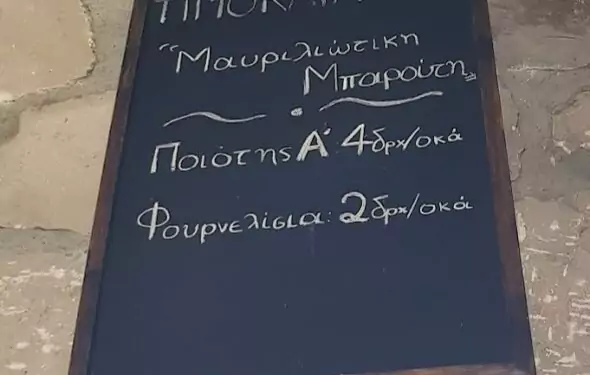 "Μαυριλιώτικη
Μπαρούτη"
Ποιότης Α΄ 4δρχ/οκά
Φουρνελίσια: 2δρχ/οκά